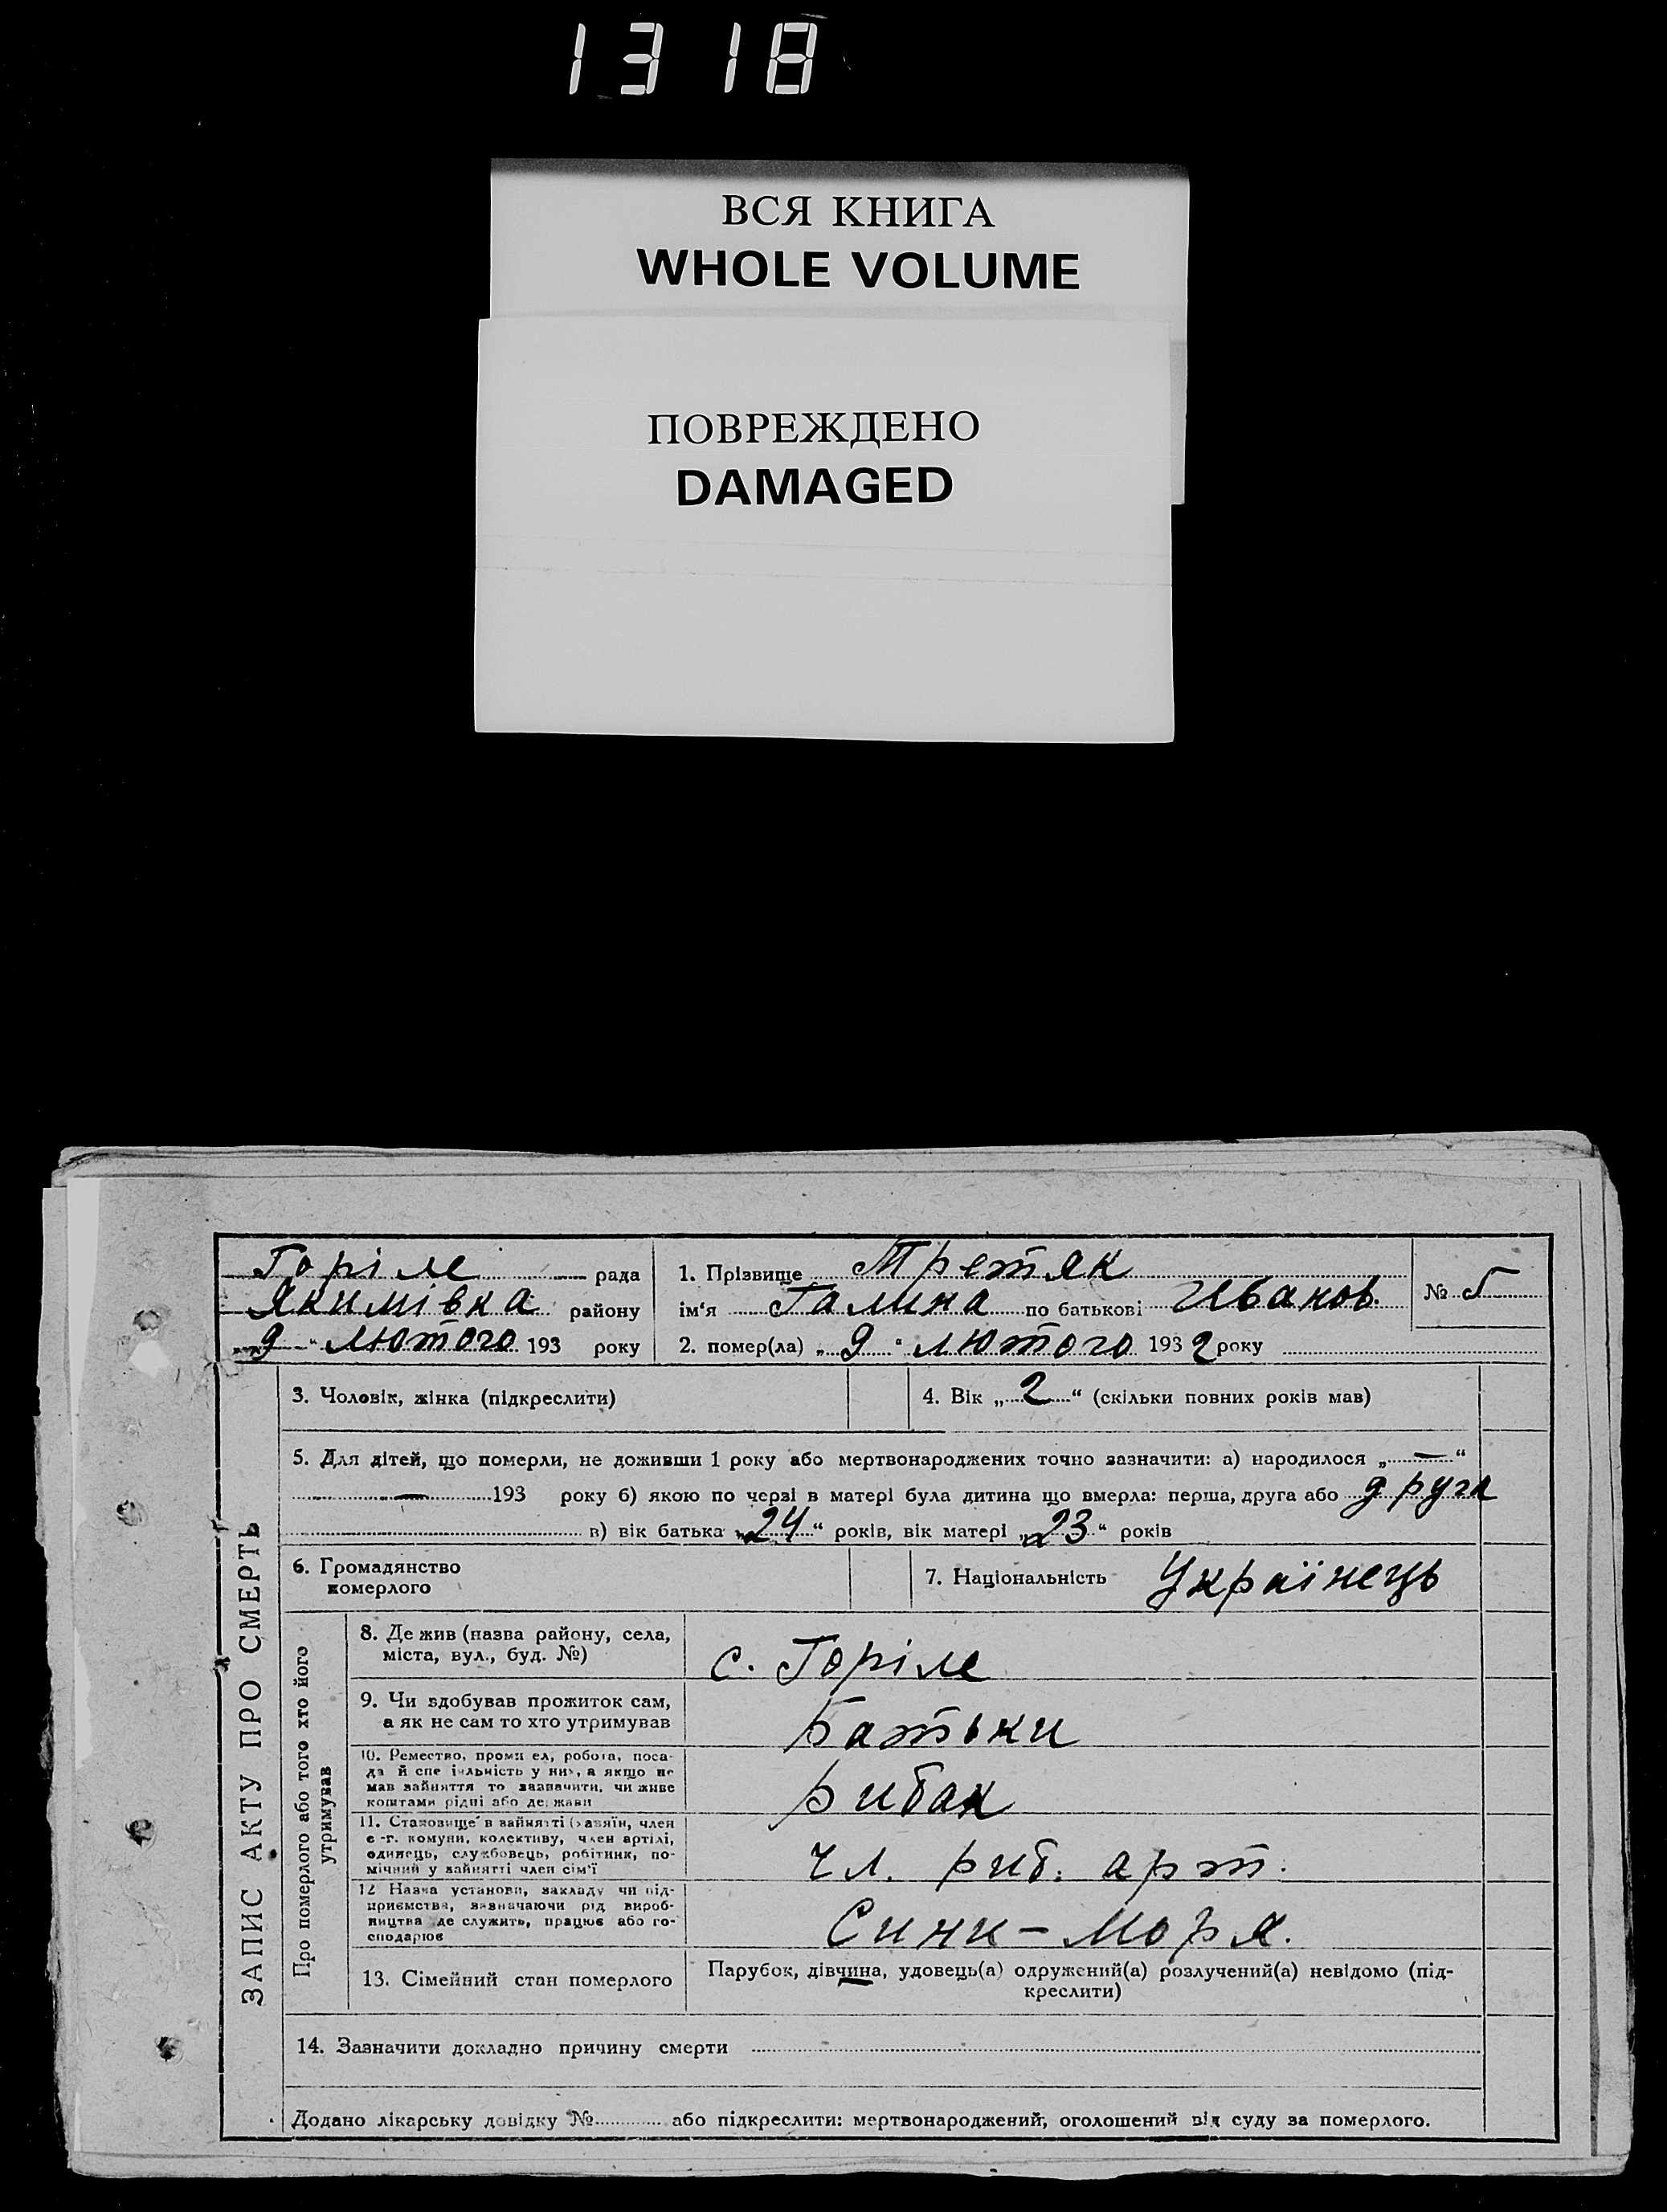 1318
ВСЯ КНИГА
WHOLE VOLUME
ПОВРЕЖДЕНО
DAMAGED
Горіле рада
Якимівка району
„ 9 “ лютого 193 року
1. Прізвище Третяк
ім'я Галина по батькові Иванов.
№ 5
2. помер(ла) „ 9 “ лютого 1932 року
ЗАПИС АКТУ ПРО СМЕРТЬ
3. Чоловік, жінка (підкреслити)
4. Вік „ 2 “ (скільки повних років мав)
5. Для дітей, що померли, не доживши 1 року або мертвонароджених точно зазначити: а) народилося „ — “
— 193 року б) якою по черзі в матері була дитина що вмерла: перша, друга або друга
в) вік батька „ 24 “ років, вік матері „ 23 “ років
6. Громадянство
померлого
7. Національність Українець
Про померлого або того хто його
утримував
8. Де жив (назва району, села,
міста, вул., буд. №)
с. Горіле
9. Чи здобував прожиток сам,
а як не сам то хто утримував
Батьки
10. Ремество, промисел, робота, поса-
да й спеціяльність у них, а якщо не
мав зайняття то зазначити, чи живе
коштами рідні або держави
рибак
11. Становище в зайнятті (хазяїн, член
с-г. комуни, колективу, член артілі,
одинець, службовець, робітник, по-
мічний у зайнятті член сім'ї
чл. риб. арт.
12 Назва установи, закладу чи під-
приємства, зазначаючи рід вироб-
ництва де служить, працює або го-
сподарює
Сини-моря.
13. Сімейний стан померлого
Парубок, дівчина, удовець(а) одружений(а) розлучений(а) невідомо (під-
креслити)
14. Зазначити докладно причину смерти
Додано лікарську довідку № або підкреслити: мертвонароджений, оголошений від суду за померлого.